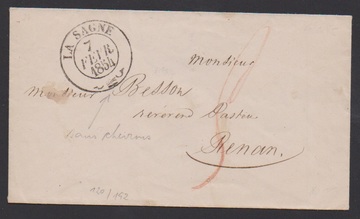 LA SAGNE
7
FEVR
1854
Monsieur
Monsieur Besson
révérend Pasteur
Renan.
120/152